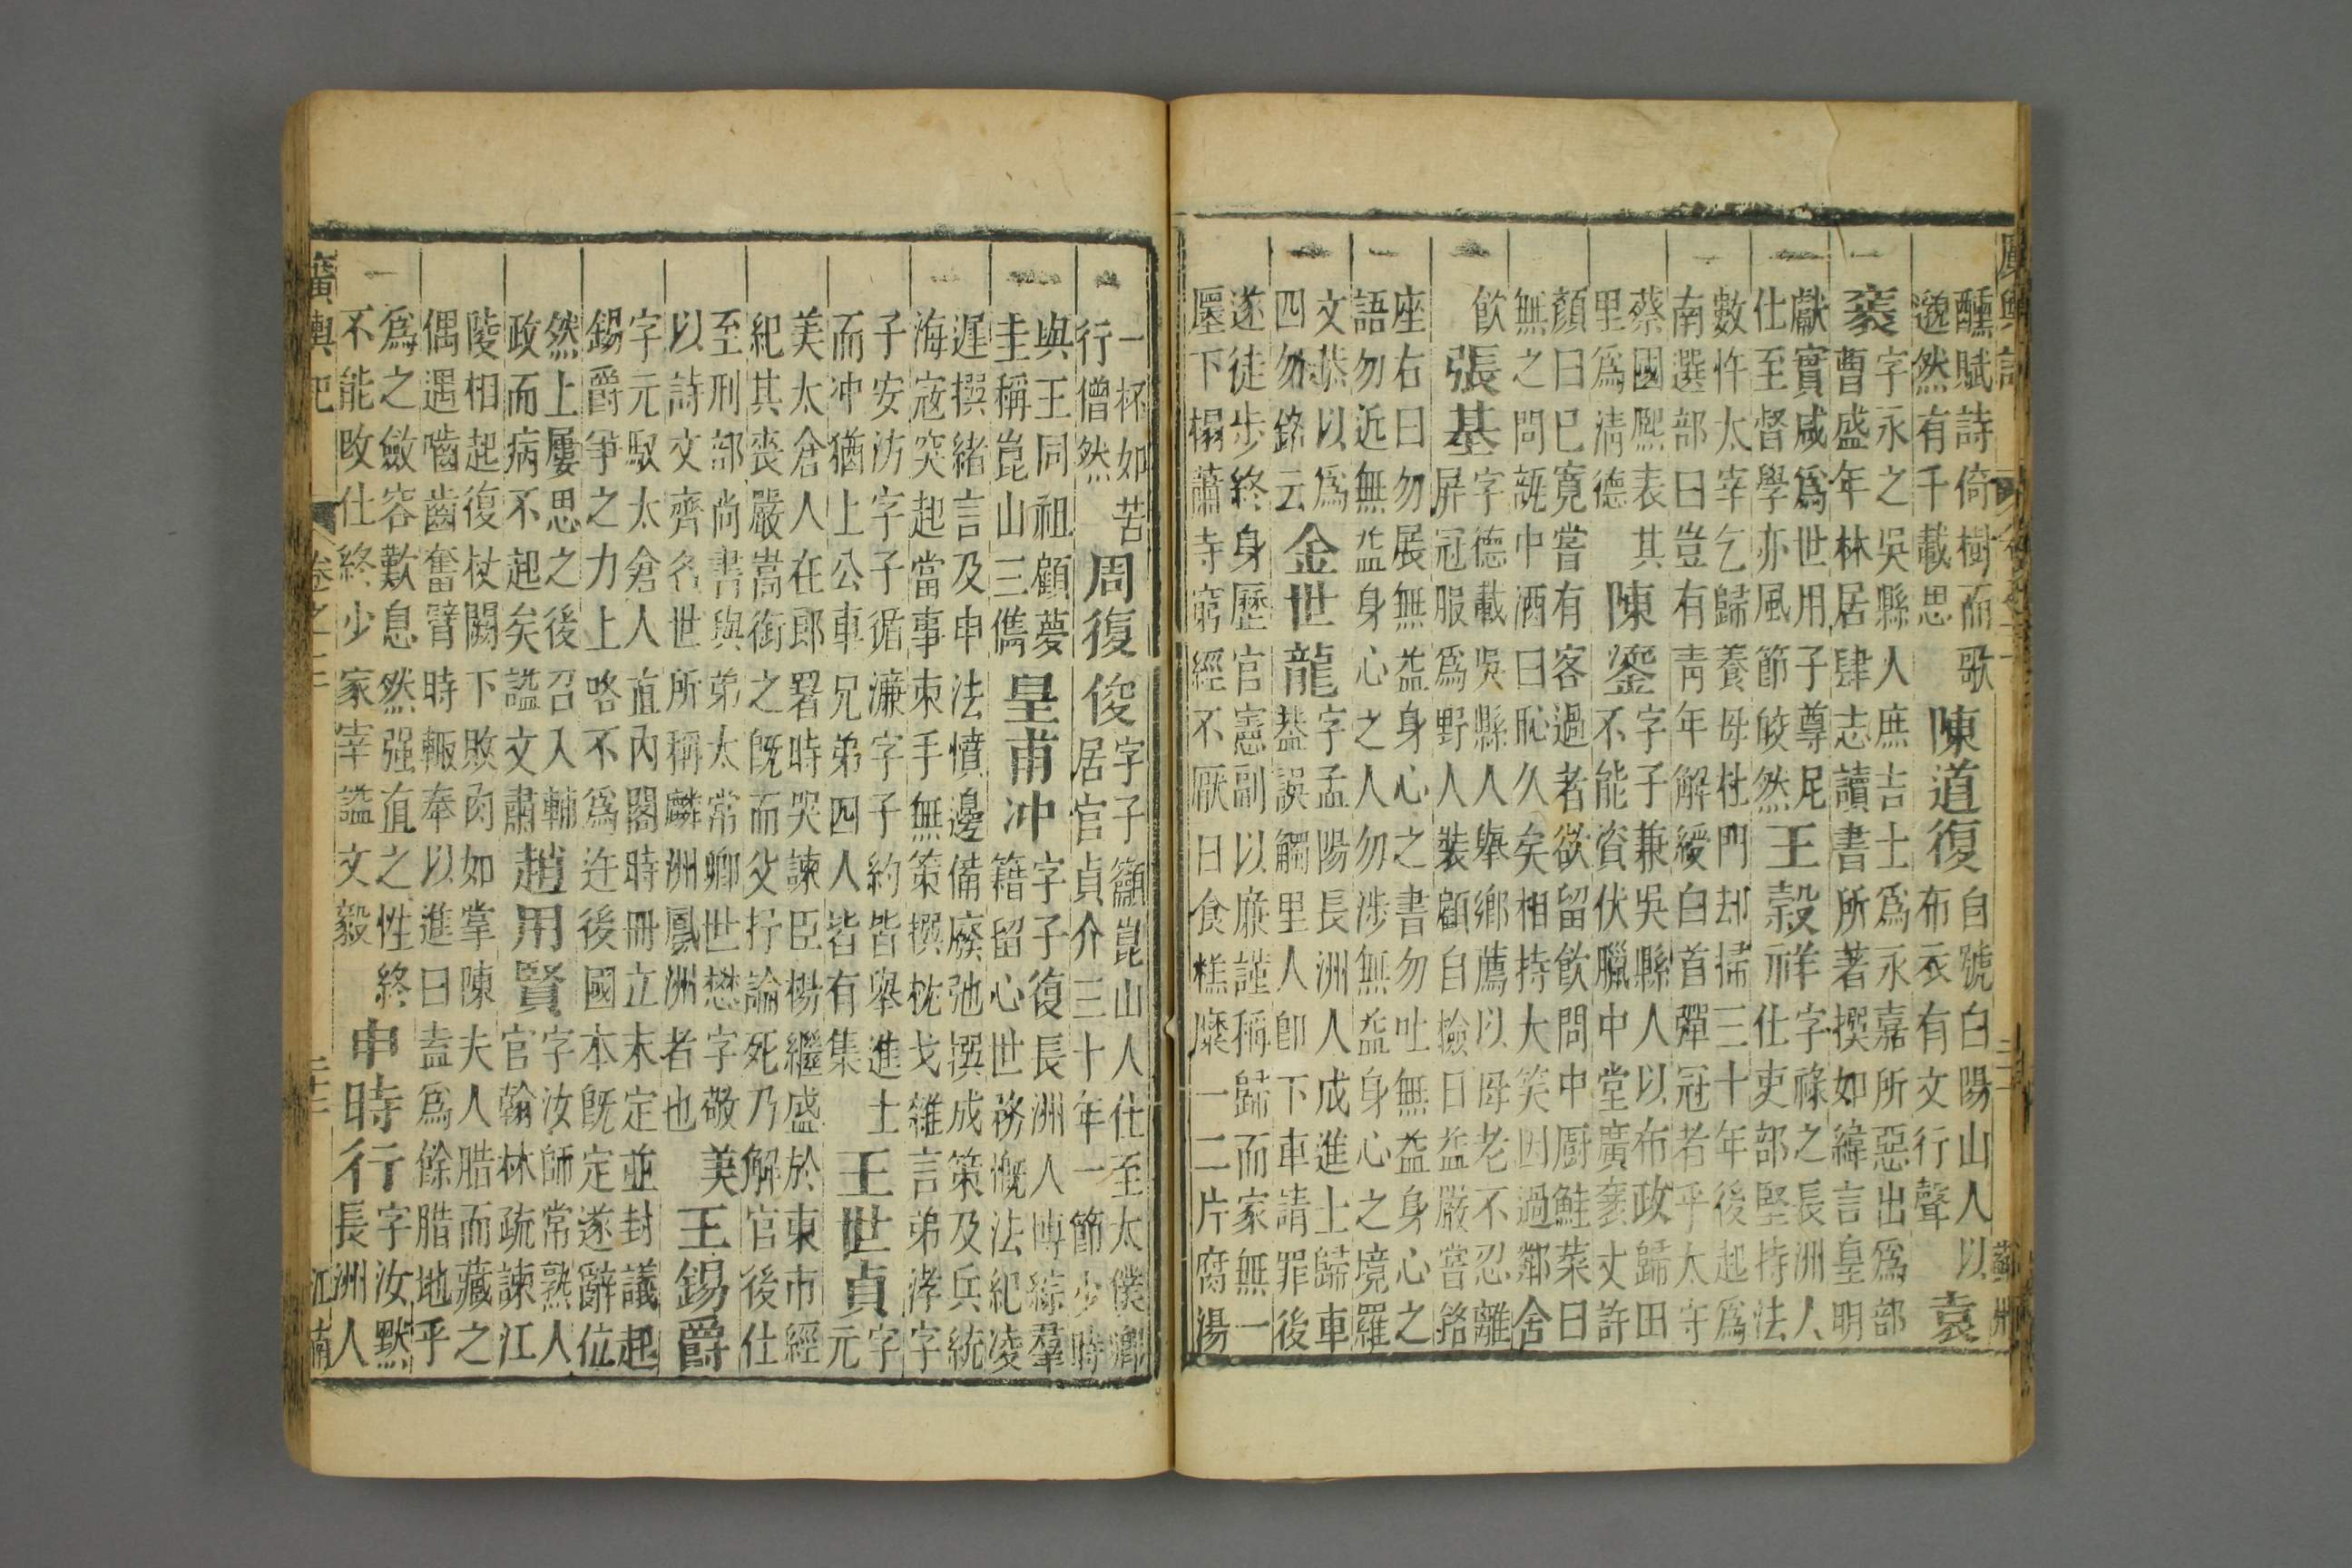 廣輿記
蘇州
醺賦詩倚樹而歌
邈然有千載思
陳道復
自號白陽山人以
布衣有文行聲
袁
袠
字永之吳縣人庶吉士為永嘉所惡出為部
曹盛年林居肆志讀書所著撰如緯言皇明
獻實咸為世用子尊尼
仕至督學亦風節皎然
王穀祥
字祿之長洲人
仕吏部堅持法
數忤太宰乞歸養母杜門却掃三十年後起為
南選部曰豈有青年解綬白首彈冠者乎太守
蔡國熈表其
里為清德
陳鎏
字子兼吳縣人以布政歸田
不能資伏臘中堂廣袤丈許
顏曰已寬嘗有客過者欲留飲問中厨鮭菜曰
無之問瓻中酒曰恥久矣相持大笑因過鄰舍
飲
張基
字德載吳縣人舉鄉薦以母老不忍離
屏冠服為野人裝顧自檢日益嚴嘗銘
座右曰勿展無益身心之書勿吐無益身心之
語勿近無益身心之人勿涉無益身心之境羅
文恭以為
四勿銘云
金世龍
字孟陽長洲人戊進士歸車
蓋誤觸里人即下車請罪後
遂徒步終身歷官憲副以廉謹稱歸而家無一
廛下榻蕭寺窮經不厭日食糕糜一二片腐湯
一杯如苦
行僧然
周復俊
字子籲崑山人仕至太僕卿
居官貞介三十年一節少時
與王同祖顧夢
圭稱崑山三儁
皇甫冲
字子復長洲人博綜羣
籍留心世務慨法紀凌
遲撰緒言及申法憤邊備廢弛撰成策及兵統
海寇突起當事束手無策撰枕戈雜言弟涍字
子安汸字子循濂字子約皆舉進士
而冲猶上公車兄弟四人皆有集
王世貞
字
元
美太倉人在郎署時哭諫臣楊繼盛於東市經
紀其喪嚴嵩銜之既而父抒論死乃解官後仕
至刑部尚書與弟太常卿世懋字敬美
以詩文齊名世所稱麟洲鳳洲者也
王錫爵
字元馭太倉人直內閣時冊立未定並封議起
錫爵爭之力上咯不為迕後國本既定遂辭位
然上屢思之後召入輔
政而病不起矣諡文肅
趙用賢
字汝師常熟人
官翰林疏諫江
陵相起復杖闕下敗肉如掌陳夫人腊而藏之
偶遇嚙齒奮臂時輒奉以進曰盍為餘腊地乎
為之斂容歎息然强直之性終
不能改仕終少冢宰諡文毅
申時行
字汝默
長洲人
廣輿記
卷之二
二十二
江南